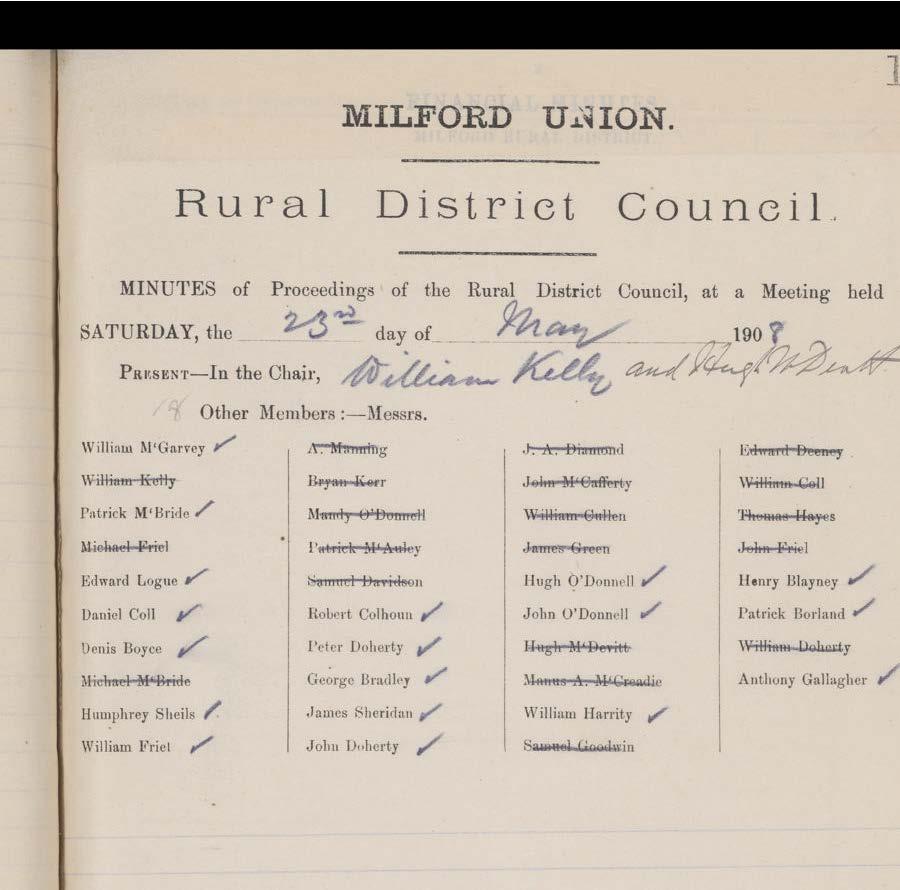 MILFORD UNION.
Rural District Council.
MINUTES of Proceedings of the Rural District Council, at a Meeting held
SATURDAY, the 23rd day of May 1908
PRESENT—In the Chair, William Kelly and Hugh McDevitt
18 Other Members :—Messrs.
William M'Garvey A. Manning J. A. Diamond Edward Deeney
William Kelly Bryan Kerr John M'Cafferty William Coll
Patrick M'Bride Mandy O'Donnell William Cullen Thomas Hayes
Michael Friel Patrick M'Auley James Green John Friel
Edward Logue Samuel Davidson Hugh O'Donnell Henry Blayney
Daniel Coll Robert Colhoun John O'Donnell Patrick Borland
Denis Boyce Peter Doherty Hugh M'Devitt William Doherty
Michael M'Bride George Bradley Manus A. M'Creadie Anthony Gallagher
Humphrey Sheils James Sheridan William Harrity
William Friel John Doherty Samuel Goodwin